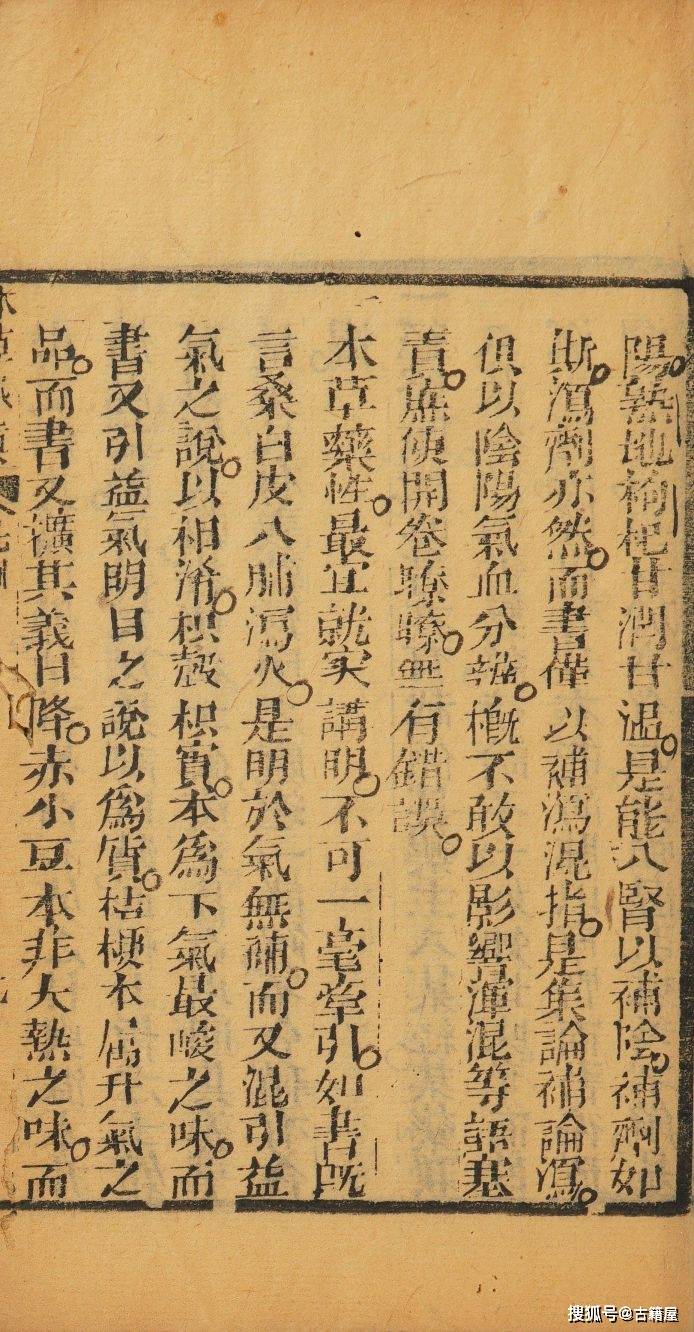 陽。熟地枸杞甘潤甘溫。是能入腎以補陰。補劑如
斯。瀉劑亦然。而書僅以補瀉混指。是集論補論瀉。
俱以陰陽氣血分辨。概不敢以影響渾混等語塞
責。庶使開卷瞭瞭。無有錯誤。
一
本草藥性。最宜就实講明。不可一毫牽引。如書旣
言桑白皮入肺瀉火。是明於氣無補。而又混引益
氣之說。以相淆。枳殼枳實。本爲下氣最峻之味。而
書又引益氣明目之說以爲質。桔梗本屬升氣之
品。而書又擴其義曰降。赤小豆本非大熱之味。而
搜狐号@古籍屋